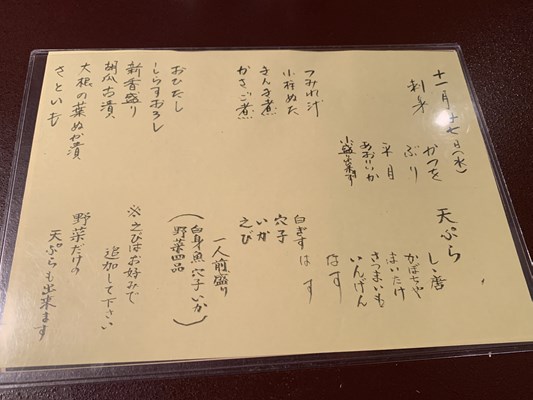 十一月廿七日(水)
刺身
かつを
ぶり
平目
あおりいか
小盛
つみれ汁
小柱ぬた
きんき煮
かさご煮
おひたし
しらすおろし
新香盛り
胡瓜古漬
大根の葉ぬか漬
さといも
天ぷら
しゝ唐
かぼちゃ
まいたけ
さつまいも
いんげん
なす
はす
白きす
穴子
いか
えび
一人前盛り
(白身魚 穴子 いか
野菜四品)
※えびはお好みで
追加して下さい
野菜だけの
天ぷらも出来ます